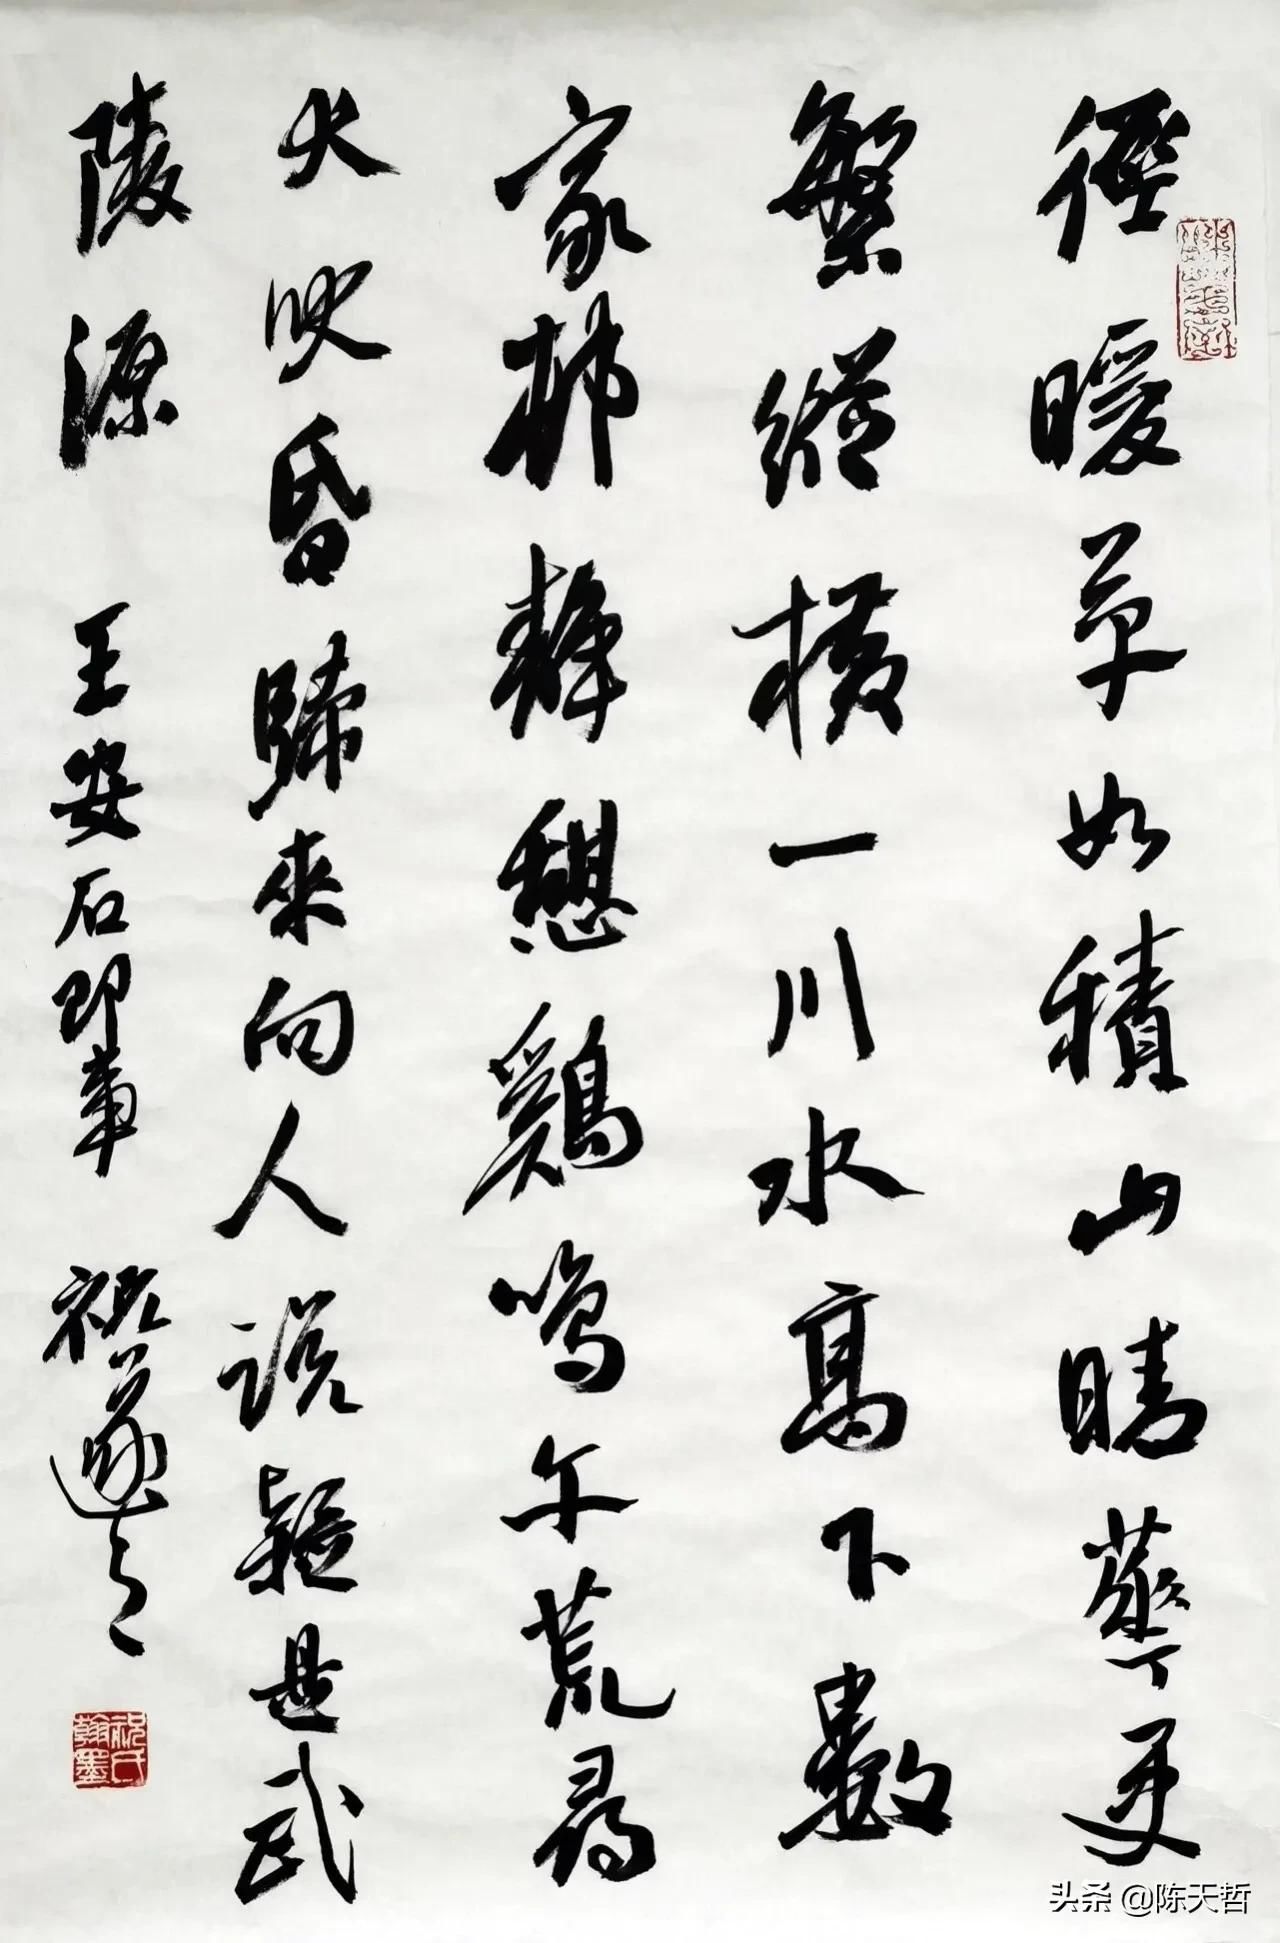 徑暖草如積山晴華更
繁縱橫一川水高下數
家村靜憩鷄鳴午荒尋
犬吠昏歸來向人說疑是武
陵源 王安石即事 祝遂之
祝氏翰墨
头条 @陈天哲